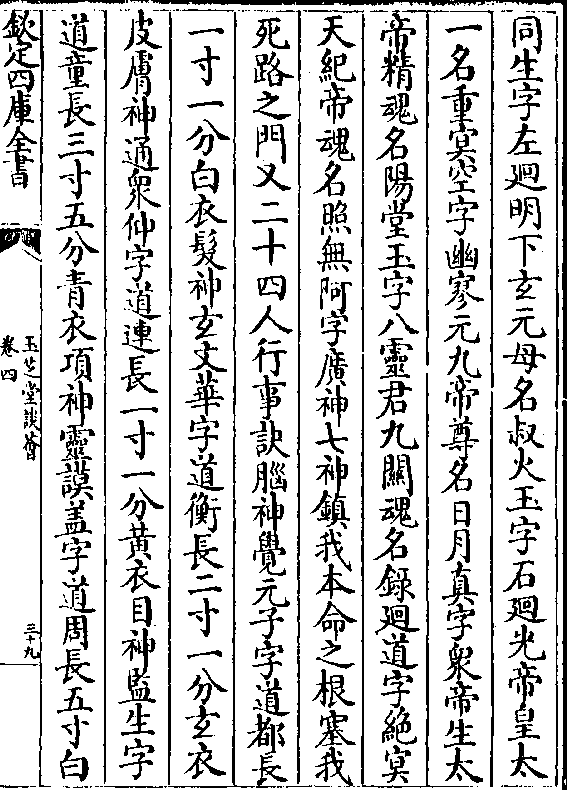 同生字左廻明下玄元母名叔火玉字石廻光帝皇太
一名重冥空字幽寥元九帝尊名日月真字衆帝生太
帝精魂名陽堂玉字八靈君九關魂名錄廻道字絶冥
天紀帝魂名照無阿字廣神七神鎮我本命之根塞我
死路之門又二十四人行事訣腦神覺元子字道都長
一寸一分白衣髮神玄文華字道衡長二寸一分玄衣
皮膚神通衆仲字道連長一寸一分黃衣目神監生字
道童長三寸五分青衣項神靈謨盖字道周長五寸白
欽定四庫全書
玉芝堂談薈
卷四
三十九